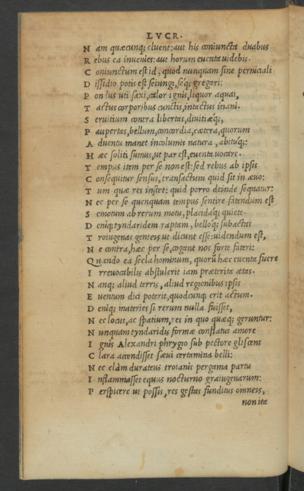 LVCR.
N am quæcunq; cluent: aut his coniuncta duabus
R ebus ea inuenies: aut horum euenta uidebis.
C oniunctum est id, quod nunquam sine perniciali
D issidio potis est seiungi, seq; gregari:
P ondus uti saxi, calor ignis, liquor aquai,
T actus corporibus cunctis, intactus inani.
S eruitium contra libertas, diuitiæq;,
P aupertas, bellum, concordia, cætera, quorum
A duentu manet incolumis natura, abituq;:
H æc soliti sumus, ut par est, euenta uocare.
T empus item per se non est: sed rebus ab ipsis
C onsequitur sensus, transactum quid sit in æuo:
T um quæ res instet: quid porro deinde sequatur:
N ec per se quenquam tempus sentire fatendum est
S emotum ab rerum motu, placidaq; quiete.
D eniq; tyndaridem raptam, belloq; subactas
T roiugenas genteis ut dicunt esse: uidendum est,
N e contra, hæc per se, cogant nos forte fateri:
Quando ea secla hominum, quorū hæc euenta fuere
I rreuocabilis abstulerit iam præterita ætas.
N anq; aliud terris, aliud regionibus ipsis
E uentum dici poterit, quodcunq; erit actum.
D eniq; materies si rerum nulla fuisset,
N ec locus, ac spatium, res in quo quæq; geruntur:
N unquam tyndaridis formæ conflatus amore
I gnis Alexandri phrygio sub pectore gliscens
C lara accendisset sæui certamina belli:
N ec clàm durateus troianis pergama partu
I nflammasset equus nocturno graiugenarum:
P erspicere ut possis, res gestas funditus omneis,
non ita